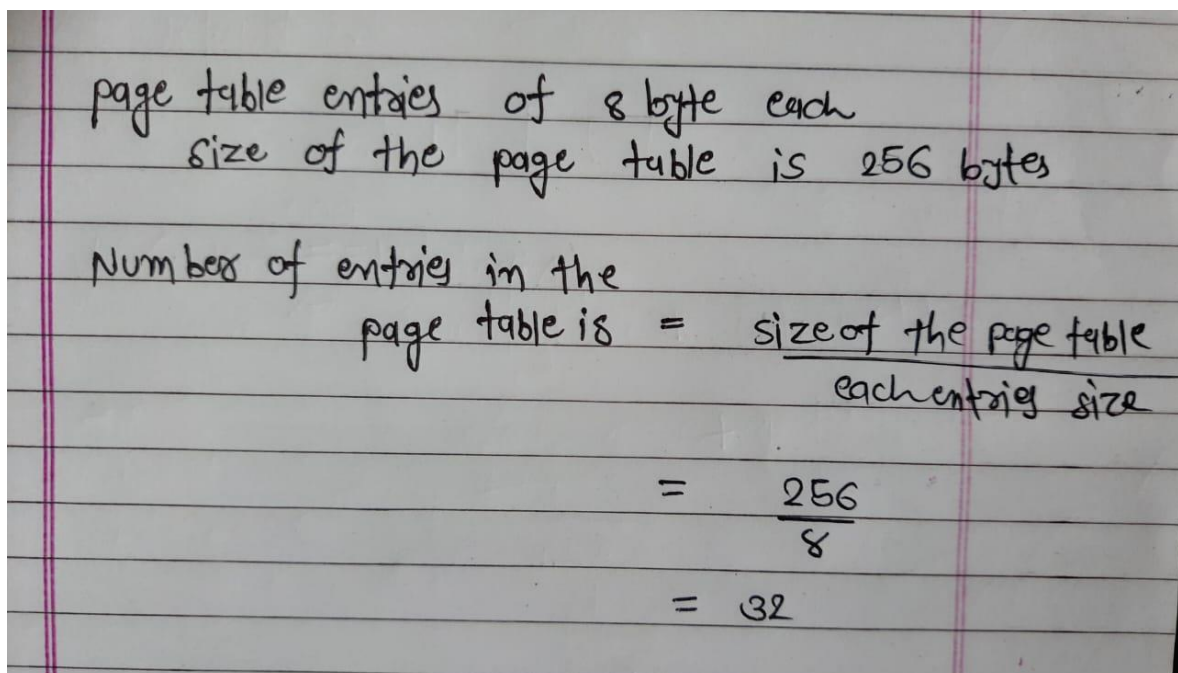 page table entries of 8 byte each
size of the page table is 256 bytes
Number of entries in the
page table is = size of the page table
each entries size
= 256
8
= 32